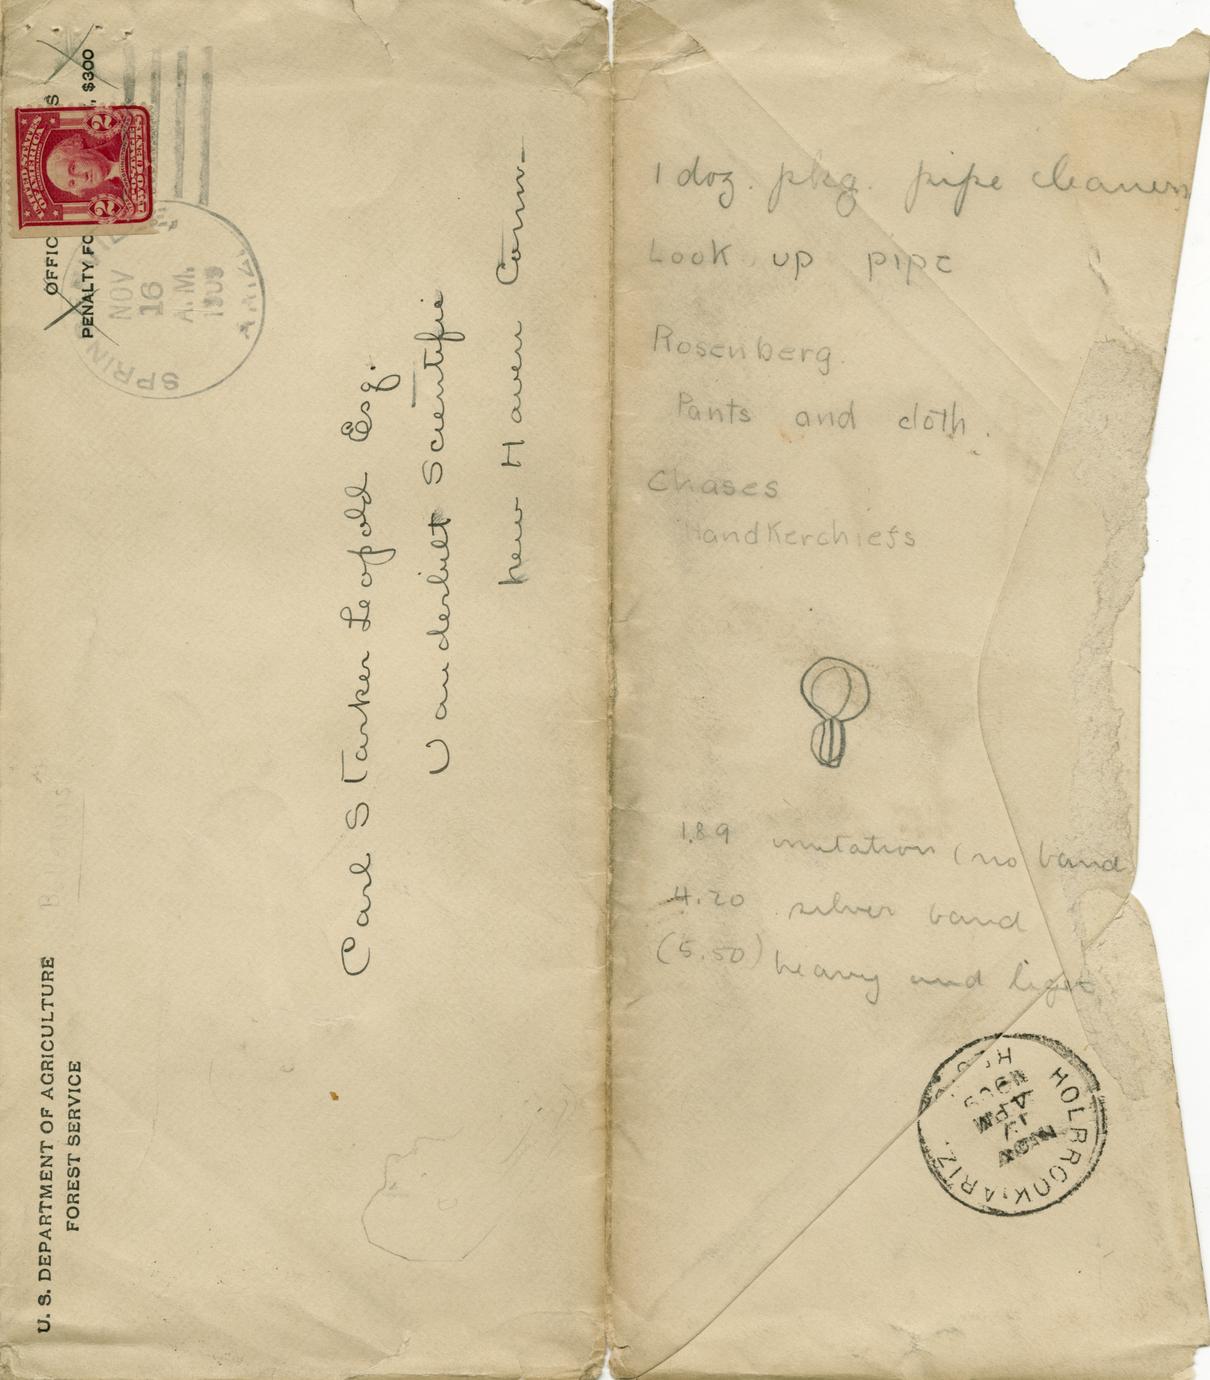 U. S. DEPARTMENT OF AGRICULTURE
FOREST SERVICE
OFFIC S
PENALTY FO , $300
UNITED STATES
OF AMERICA
POSTAGE
TWO CENTS
2 2
SPRIN
NOV
16
A.M.
1909
ARIZ
Carl Starker Leopold Esq.
Vanderbilt Scientific
New Haven Conn-
1 doz. pkg. pipe cleaners
Look up pipe
Rosenberg.
Pants and cloth.
Chases
Handkerchiefs
1.89 imitation (no band
4.20 silver band
(5.50) heavy and light
HOLBROOK, ARIZ.
NOV
17
PM
1909